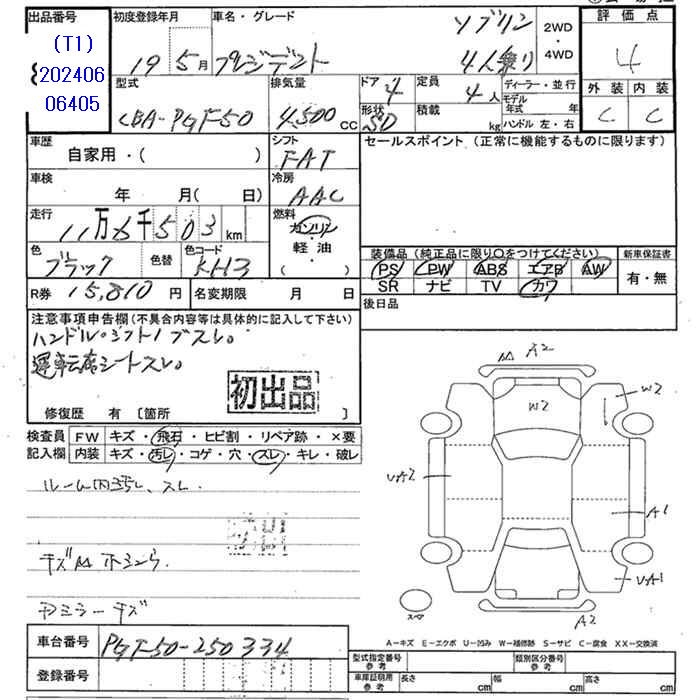 出品番号 初度登録年月 車名・グレード ソブリン 2WD・4WD 評価点
(T1) 19 5月 プレジデント 4人乗り 4
202406
06405
型式 排気量 ドア 4 定員 4人 ディーラー・並行 外装 内装
CBA-PGF50 4,500cc 形状 SD 積載 kg モデル年式 年 C C
ハンドル 左・右
車歴 シフト セールスポイント (正常に機能するものに限ります)
自家用・( ) FAT
車検 冷房
年 月(日) AAC
走行 燃料
11万 千503km ガソリン・軽油・( )
色 色替 色コード 装備品 (純正品に限り○をつけてください) 新車保証書
ブラック KH3 PS PW ABS エアB AW 有・無
SR ナビ TV カワ
R券 15,810円 名変期限 月 日 後日品
注意事項申告欄 (不具合内容等は具体的に記入して下さい)
ハンドル・シフトノブスレ。
運転席シートスレ。
初出品
修復歴 有 [箇所 ]
検査員 FW キズ・飛石・ヒビ割・リペア跡・×要
記入欄 内装 キズ・汚レ・コゲ・穴・スレ・キレ・破レ
ルーム内汚レ、スレ.
キズM
ミラーキズ
A2
W2 W2
A1
A2
スペア
A=キズ E=エクボ U=凹み W=補修跡 S=サビ C=腐食 XX=交換済
車台番号 PGF50-250334
登録番号
型式指定番号 参考 類別区分番号 参考
車庫証明用 参考 長さ cm 幅 cm 高さ cm